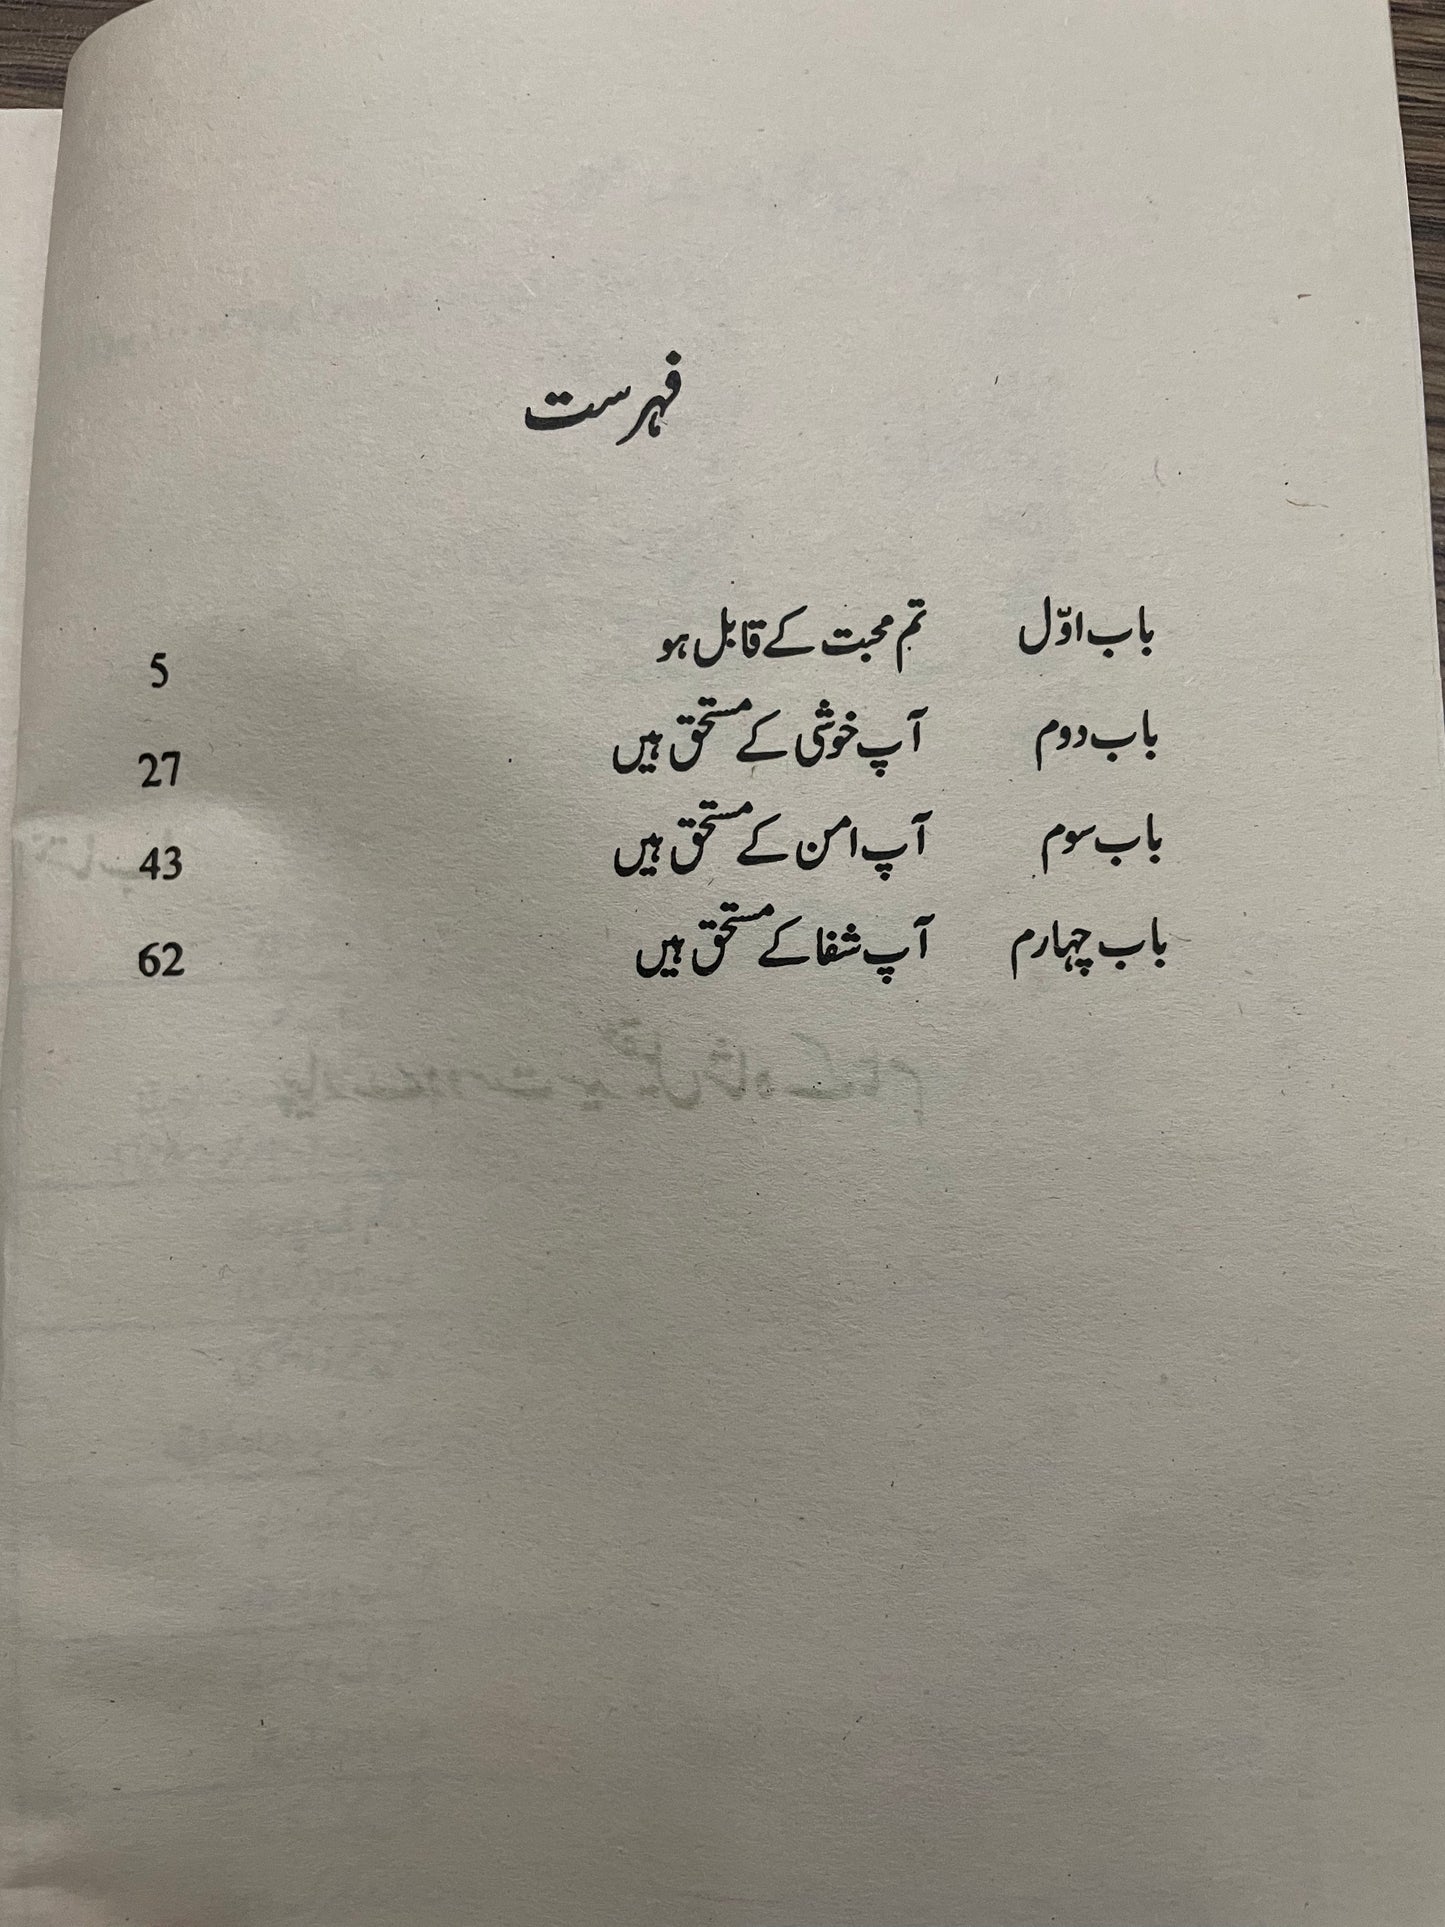 فہرست
باب اوّل تم محبت کے قابل ہو 5
باب دوم آپ خوشی کے مستحق ہیں 27
باب سوم آپ امن کے مستحق ہیں 43
باب چہارم آپ شفا کے مستحق ہیں 62